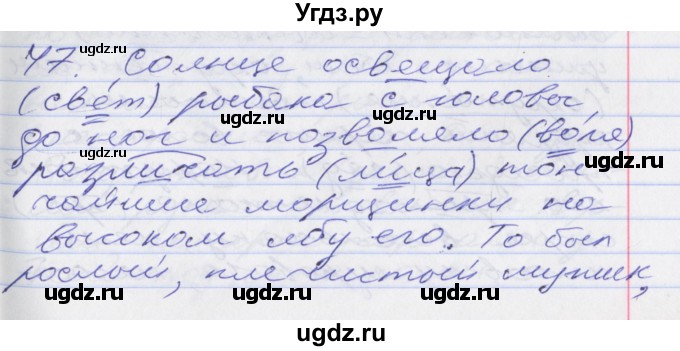 Угдз.ру
47. Солнце освещало
(свет) рыбака с головы
до ног и позволяло (воля)
различать (лица) тон-
чайшие морщинки на
высоком лбу его. То был
рослый, плечистый мужик,
gdz.ru
gdz.ru
gdz.ru
gdz.ru
gdz.ru
gdz.ru
gdz.ru
gdz.ru
gdz.ru
gdz.ru
gdz.ru